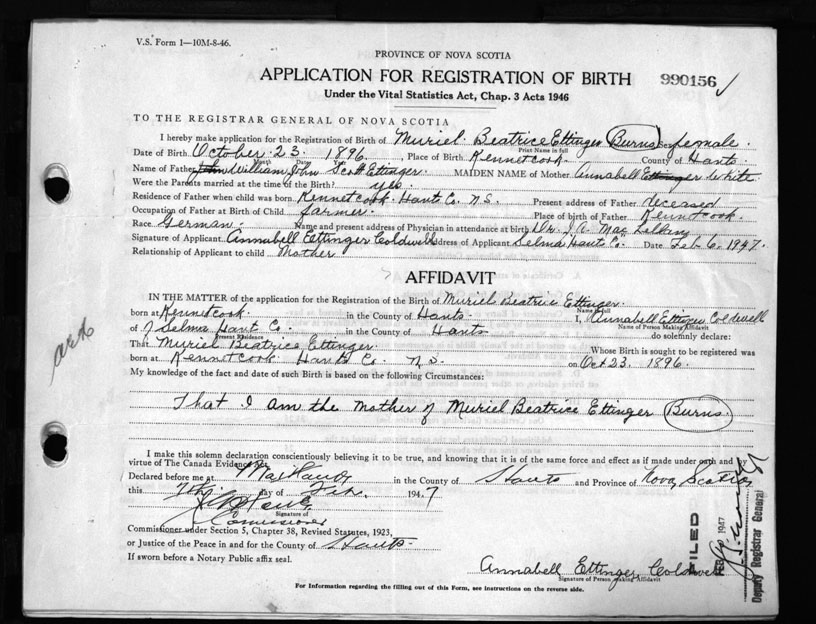 V.S. Form 1—10M-8-46.
PROVINCE OF NOVA SCOTIA
APPLICATION FOR REGISTRATION OF BIRTH 990156
Under the Vital Statistics Act, Chap. 3 Acts 1946
TO THE REGISTRAR GENERAL OF NOVA SCOTIA
I hereby make application for the Registration of Birth of Muriel Beatrice Ettinger Burns Sex female.
Print Name in full
Date of Birth October 23 1896, Place of Birth Kennetcook County of Hants
Month Date Year
Name of Father John William John Scott Ettinger. MAIDEN NAME of Mother Annabell Ettinger White
Were the Parents married at the time of the Birth? yes.
Residence of Father when child was born Kennetcook Hants Co. N.S. Present address of Father deceased
Occupation of Father at Birth of Child farmer. Place of birth of Father Kennetcook.
Race German. Name and present address of Physician in attendance at birth Dr. J.A. Mac
Signature of Applicant Annabell Ettinger Coldwell Address of Applicant Selma Hants Co. Date Feb 6, 1947.
Relationship of Applicant to child Mother
AFFIDAVIT
IN THE MATTER of the application for the Registration of the Birth of Muriel Beatrice Ettinger.
Name in full
born at Kennetcook in the County of Hants. I, Annabell Ettinger Coldwell
Name of Person Making Affidavit
of Selma Hant Co. in the County of Hants do solemnly declare:
Present Residence
That Muriel Beatrice Ettinger Whose Birth is sought to be registered was
born at Kennetcook Hants Co. N.S. on Oct 23, 1896.
My knowledge of the fact and date of such Birth is based on the following Circumstances:
That I am the mother of Muriel Beatrice Ettinger Burns.
I make this solemn declaration conscientiously believing it to be true, and knowing that it is of the same force and effect as if made under oath and by
virtue of The Canada Evidence Act.
Declared before me at Maitland in the County of Hants and Province of Nova Scotia
this 7th day of Feb. 1947
Signature of
Commissioner
Commissioner under Section 5, Chapter 38, Revised Statutes, 1923,
or Justice of the Peace in and for the County of Hants.
If sworn before a Notary Public affix seal.
Annabell Ettinger Coldwell
Signature of Person Making Affidavit
For Information regarding the filling out of this Form, see instructions on the reverse side.
FILED
FEB 1947
Deputy Registrar General